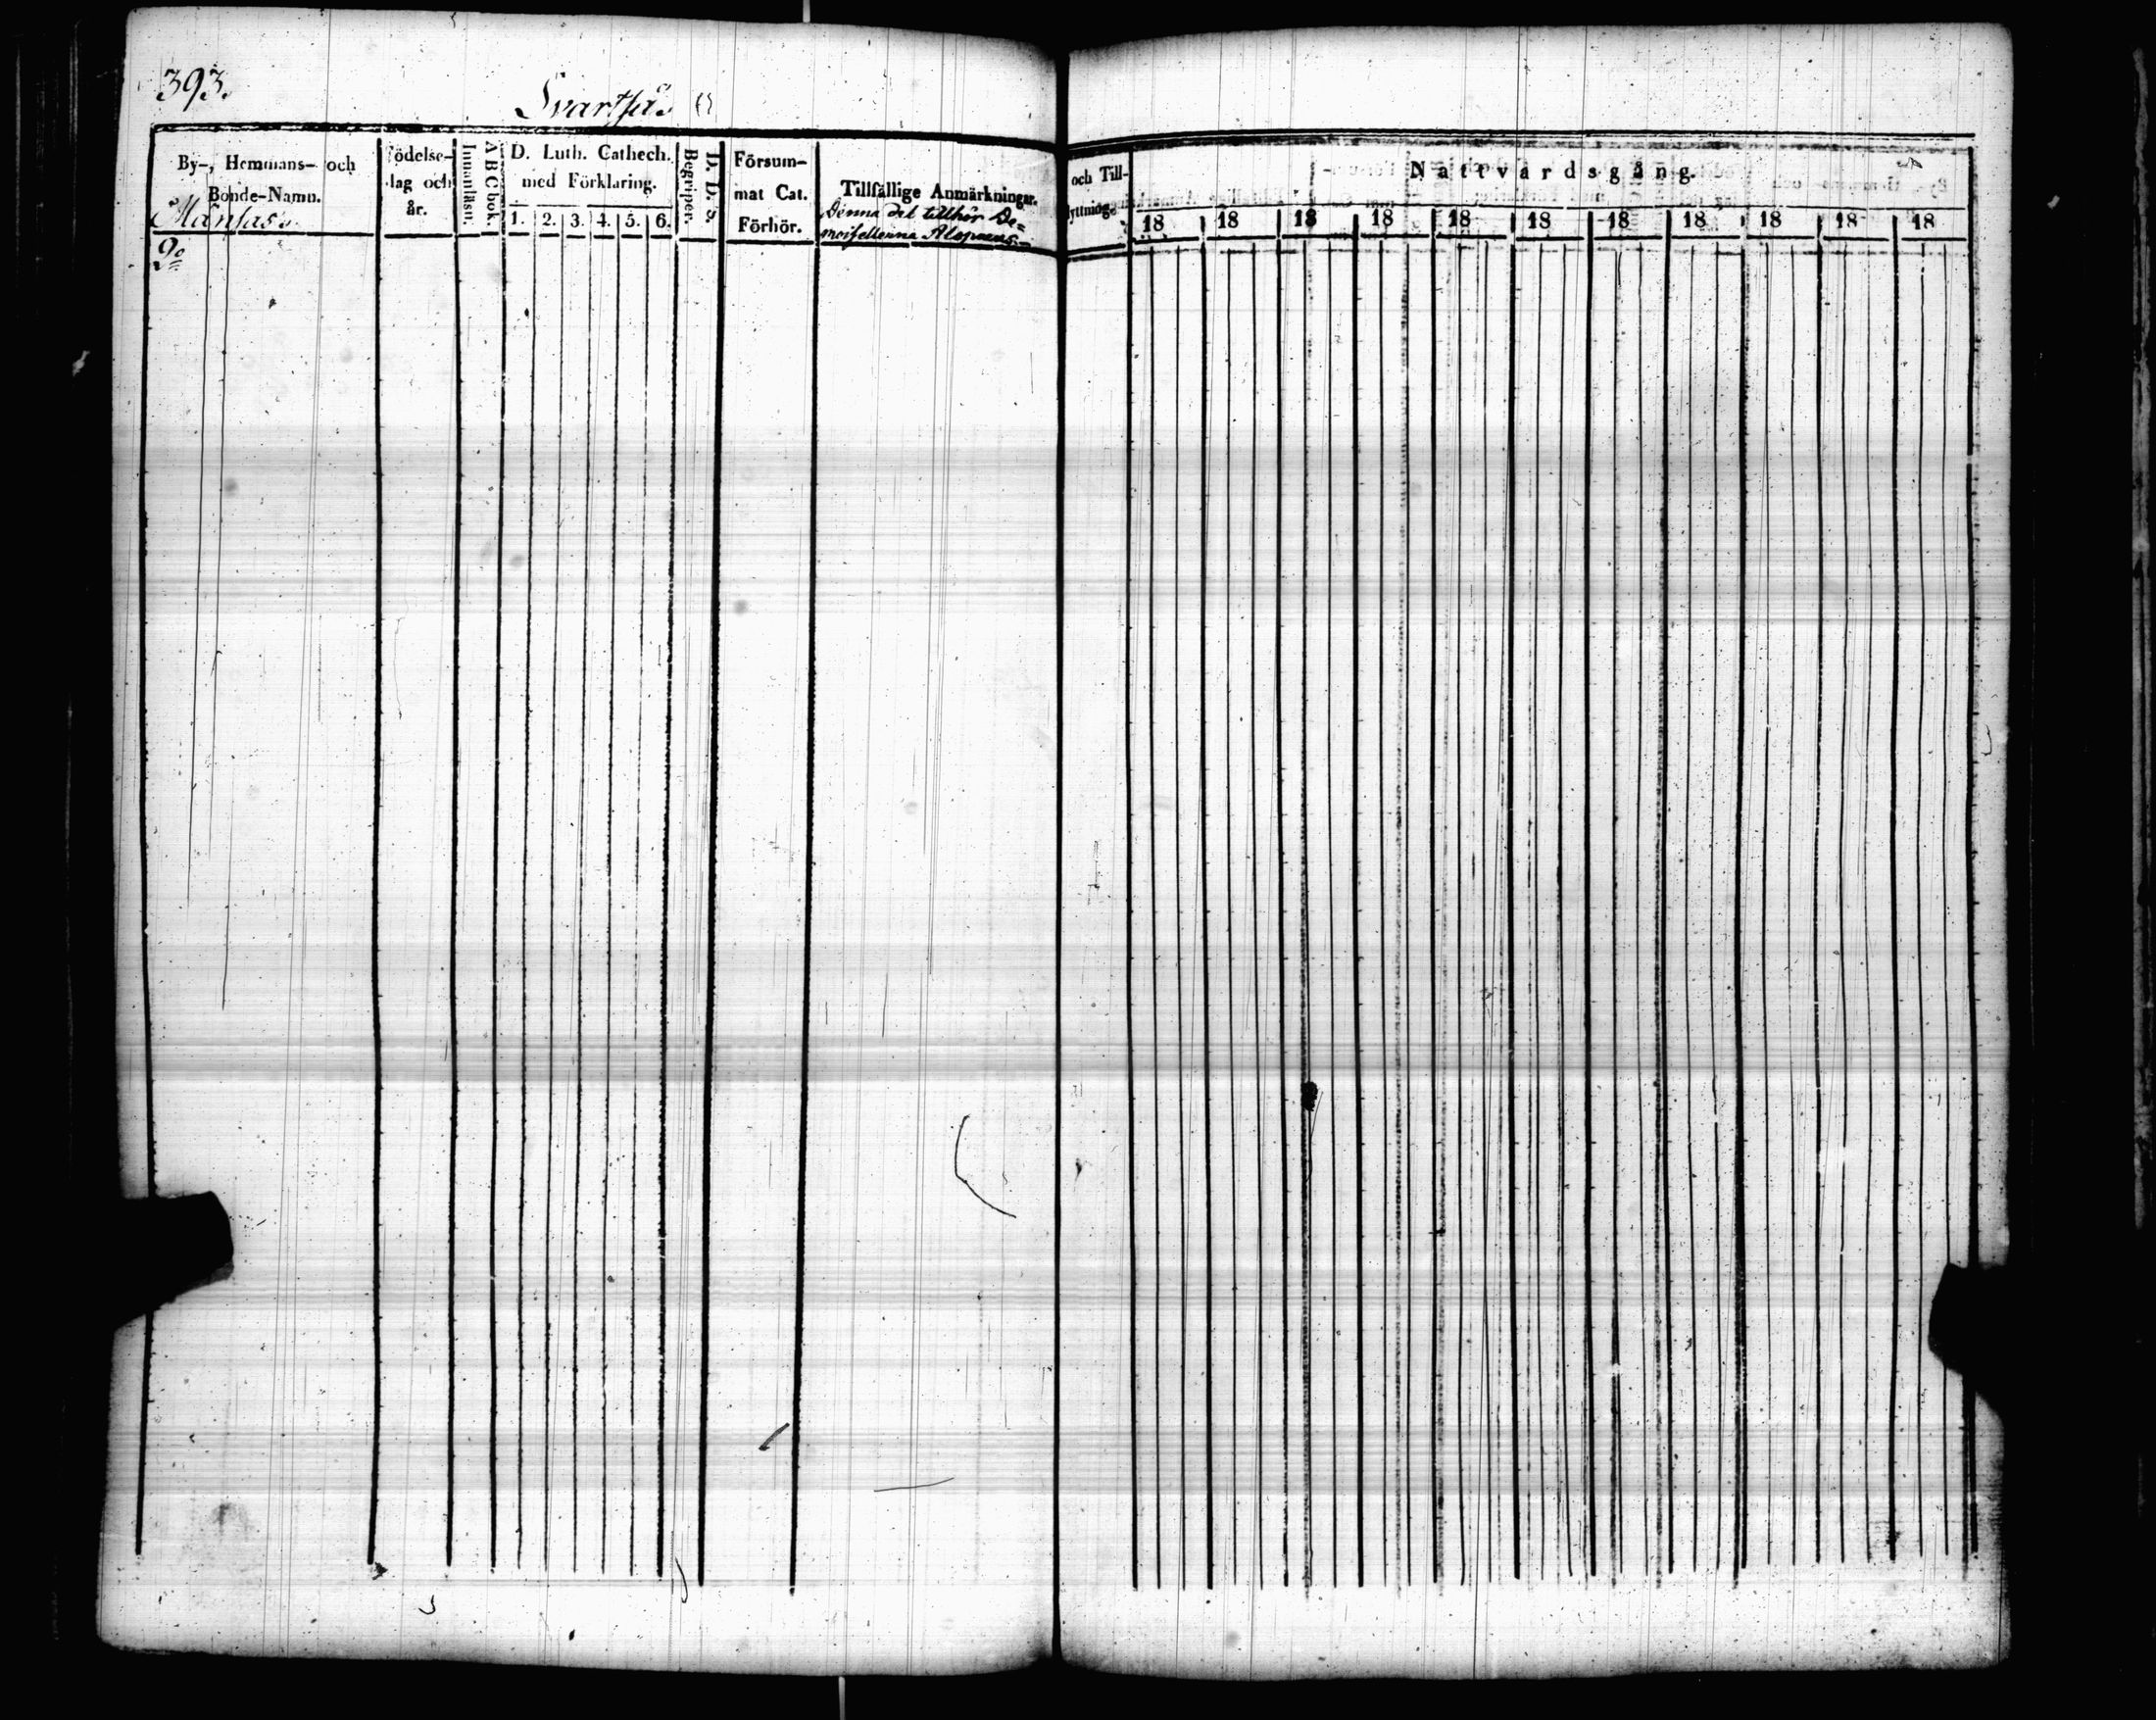 393.
Svartså
By-, Hemmans- och
Bonde-Namn.
Månsas
2o
Födelse-
dag och
år.
Innanläsn.
A B C bok.
D. Luth. Cathech.
med Förklaring.
1. 2. 3. 4. 5. 6.
Begriper.
D. D. s.
Försum-
mat Cat.
Förhör.
Tillfällige Anmärkningar.
Denna del tillhör De-
moisellerna
och Till-
flyttningar
Nattvardsgång.
18 18 18 18 18 18 18 18 18 18 18